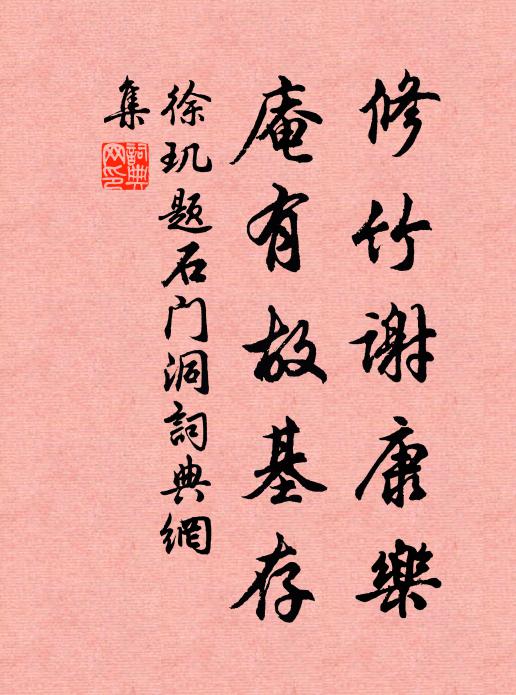 修竹谢康樂
庵有故基存
徐玑题石门洞詞典網
集
詞典
网印